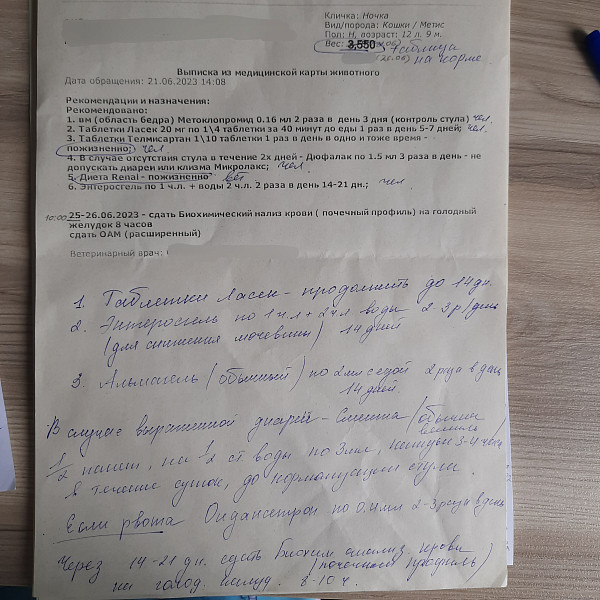 Кличка: Ночка
Вид/порода: Кошки / Метис
Пол: Н, возраст: 12 л. 9 м.
Вес: 3,550 Таблица
на корме
Выписка из медицинской карты животного
Дата обращения: 21.06.2023 14:08
Рекомендации и назначения:
Рекомендовано:
1. вм (область бедра) Метоклопромид 0.16 мл 2 раза в день 3 дня (контроль стула) чел.
2. Таблетки Ласек 20 мг по 1\4 таблетки за 40 минут до еды 1 раз в день 5-7 дней; чел.
3. Таблетки Телмисартан 1\10 таблетки 1 раз в день в одно и тоже время -
пожизненно; чел
4. В случае отсутствия стула в течение 2х дней - Дюфалак по 1.5 мл 3 раза в день - не
допускать диареи или клизма Микролакс; чел.
5. Диета Renal - пожизненно вет
6. Энтеросгель по 1 ч.л. + воды 2 ч.л. 2 раза в день 14-21 дн.; чел.
10:00 25-26.06.2023 - сдать Биохимический нализ крови ( почечный профиль) на голодный
желудок 8 часов
сдать ОАМ (расширенный)
Ветеринарный врач:
1. Таблетки Ласек - продолжить до 14 дн.
2. Энтеросгель по 1 ч.л + 2 ч л воды 2-3 р/день
(для снижения мочевины) 14 дней
3. Альмагель (обычный) по 2 мл с едой 2 раза в день
14 дней.
В случае выраженной диареи - Смекта / обычная
1/2 пакет, на 1/2 ст воды по 3 мл, каждые 3-4 часа
в течение суток, до нормализации стула.
Если рвота Ондансетрон по 0.4 мл 2-3 раза в день
Через 14-21 дн. сдать Биохим анализ крови
(почечный профиль)
на голод. желуд. 8-10 ч.